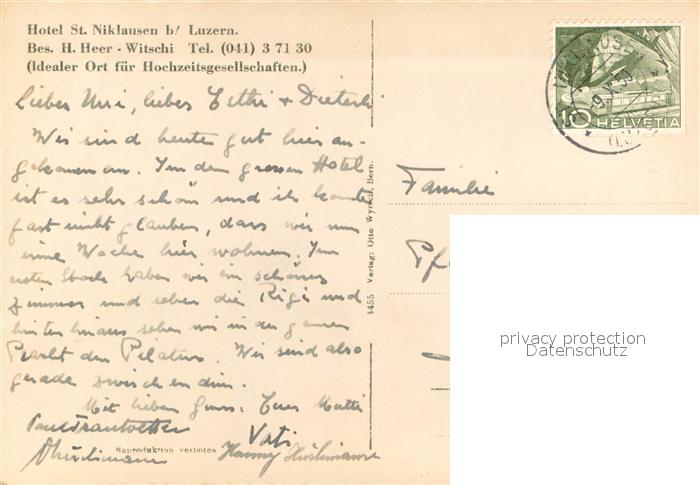 Hotel St. Niklausen b/ Luzern.
Bes. H. Heer - Witschi Tel. (041) 3 71 30
(Idealer Ort für Hochzeitsgesellschaften.)
Lieber Urri, liebes Esthi + Dieterli
Wir sind heute gut hier an-
gekommen. In dem grossen Hotel
ist es sehr schön und ich konnte
fast nicht glauben, dass wir nun
eine Woche hier wohnen. Im
ersten Stock haben wir ein schönes
Zimmer und sehen die Rigi und
hinten hinaus sehen wir in der ganzen
Pracht den Pilatus. Wir sind also
gerade zwischendrin.
Mit lieben Gruss. Eure Mutti
Vati
Hanny Hürlimann
Reproduktion verboten
4455 Verlag: Otto Wyrsch, Bern.
Familie
Pf
10 HELVETIA
privacy protection
Datenschutz